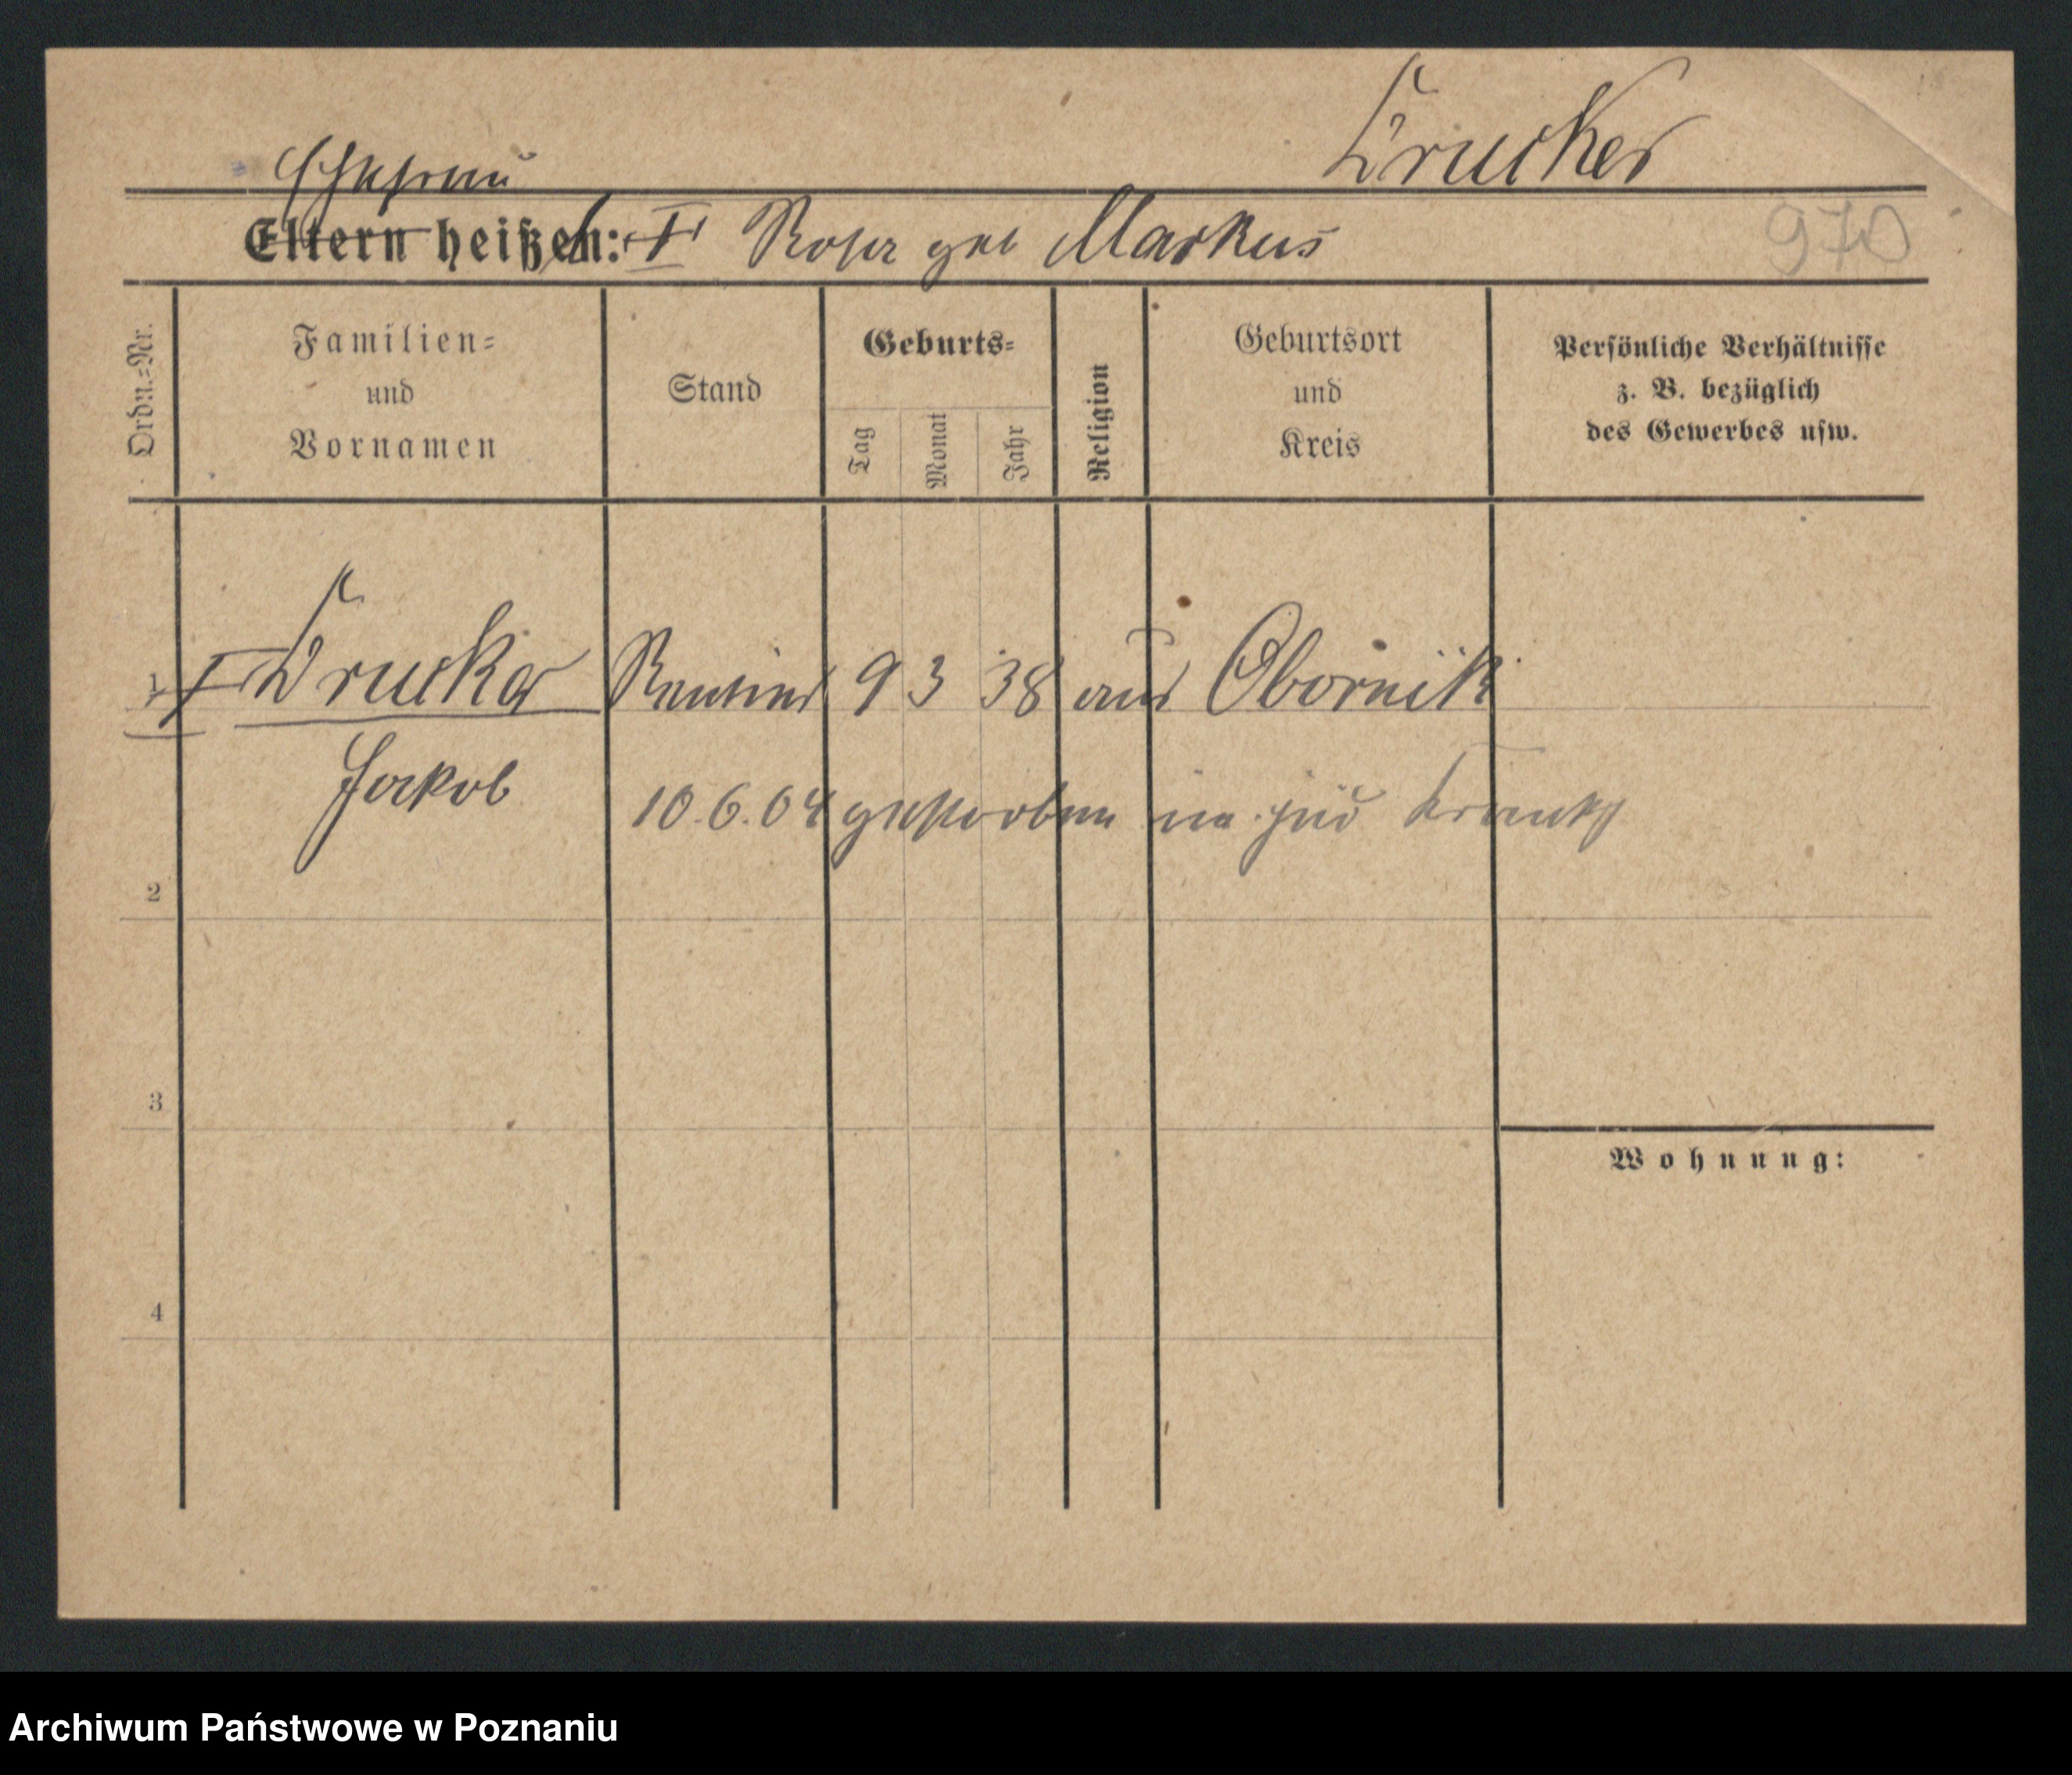 Drucker
Ehefrau
Eltern heißen: I Rosa geb Markus
970
Ordn.=Nr.
Familien=
und
Vornamen
Stand
Geburts=
Tag
Monat
Jahr
Religion
Geburtsort
und
Kreis
Persönliche Verhältnisse
z. B. bezüglich
des Gewerbes usw.
1 I Drucker Rentier 9 3 38 aus Obornik
Jakob
10.6.04 gestorben im jüd Krankh
2
3
Wohnung:
4
Archiwum Państwowe w Poznaniu